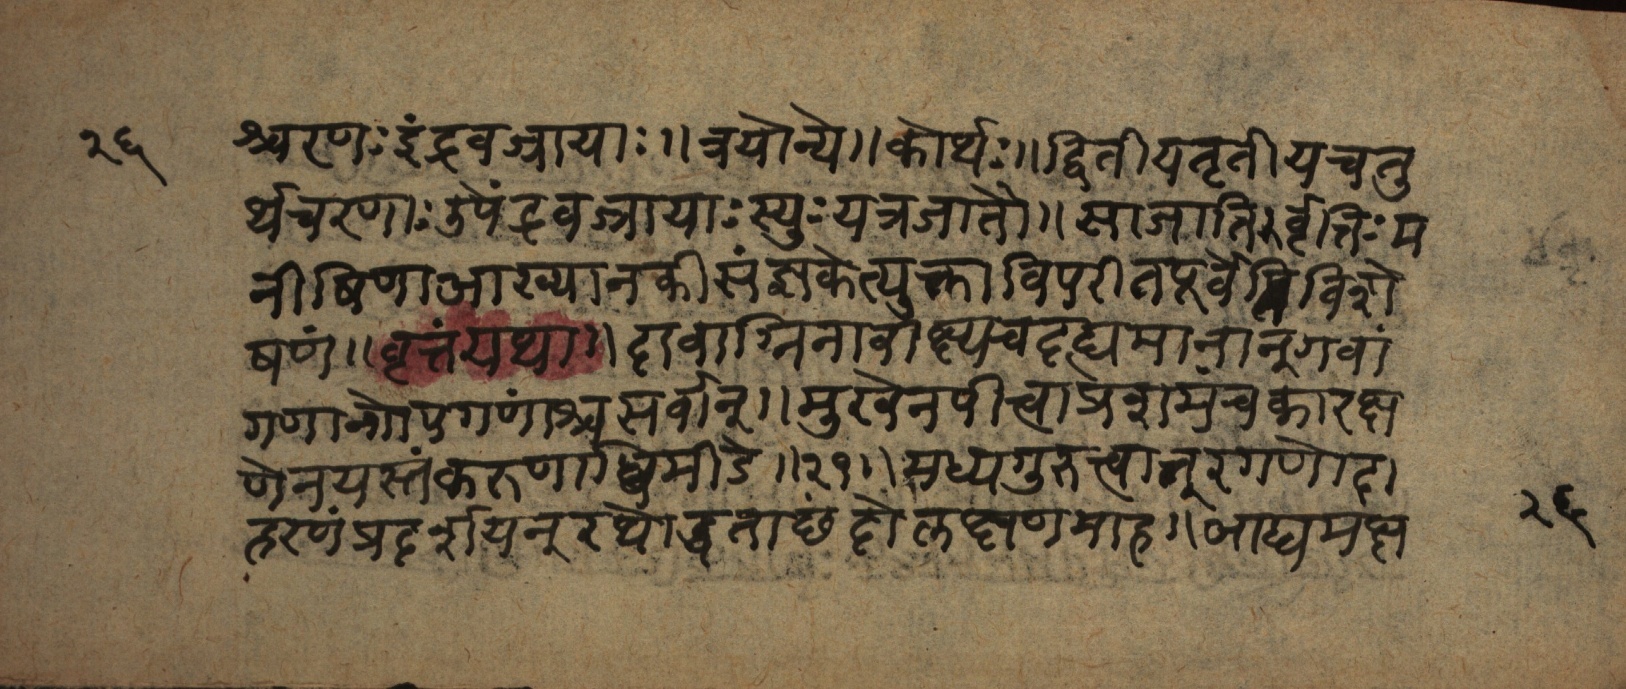 २६
श्चरणः इंद्रवज्रायाः ॥ त्रयोन्ये ॥ कोर्थः ॥ द्वितीयतृतीयचतु
र्थचरणाः उपेंद्रवज्रायाः स्युः यत्रजातौ ॥ साजातिर्वृत्तिः म
नीषिणाआख्यानकीसंज्ञकेत्युक्ता विपरीतपूर्वेति विशे
षणं ॥ वृत्तं यथा ॥ दावाग्निनावीक्ष्यचदह्यमानान् गवां
गणान्गोपगणांश्चसर्वान् ॥ मुखेनपीत्वाप्रशमंचकारक्ष
णेनयस्तंकरुणाब्धिमीडे ॥ २१ ॥ मध्यगुरुत्वात् रगणोदा
हरणंप्रदर्शयन् रथोद्धताछंदोलक्षणमाह ॥ आद्यमक्ष
२६